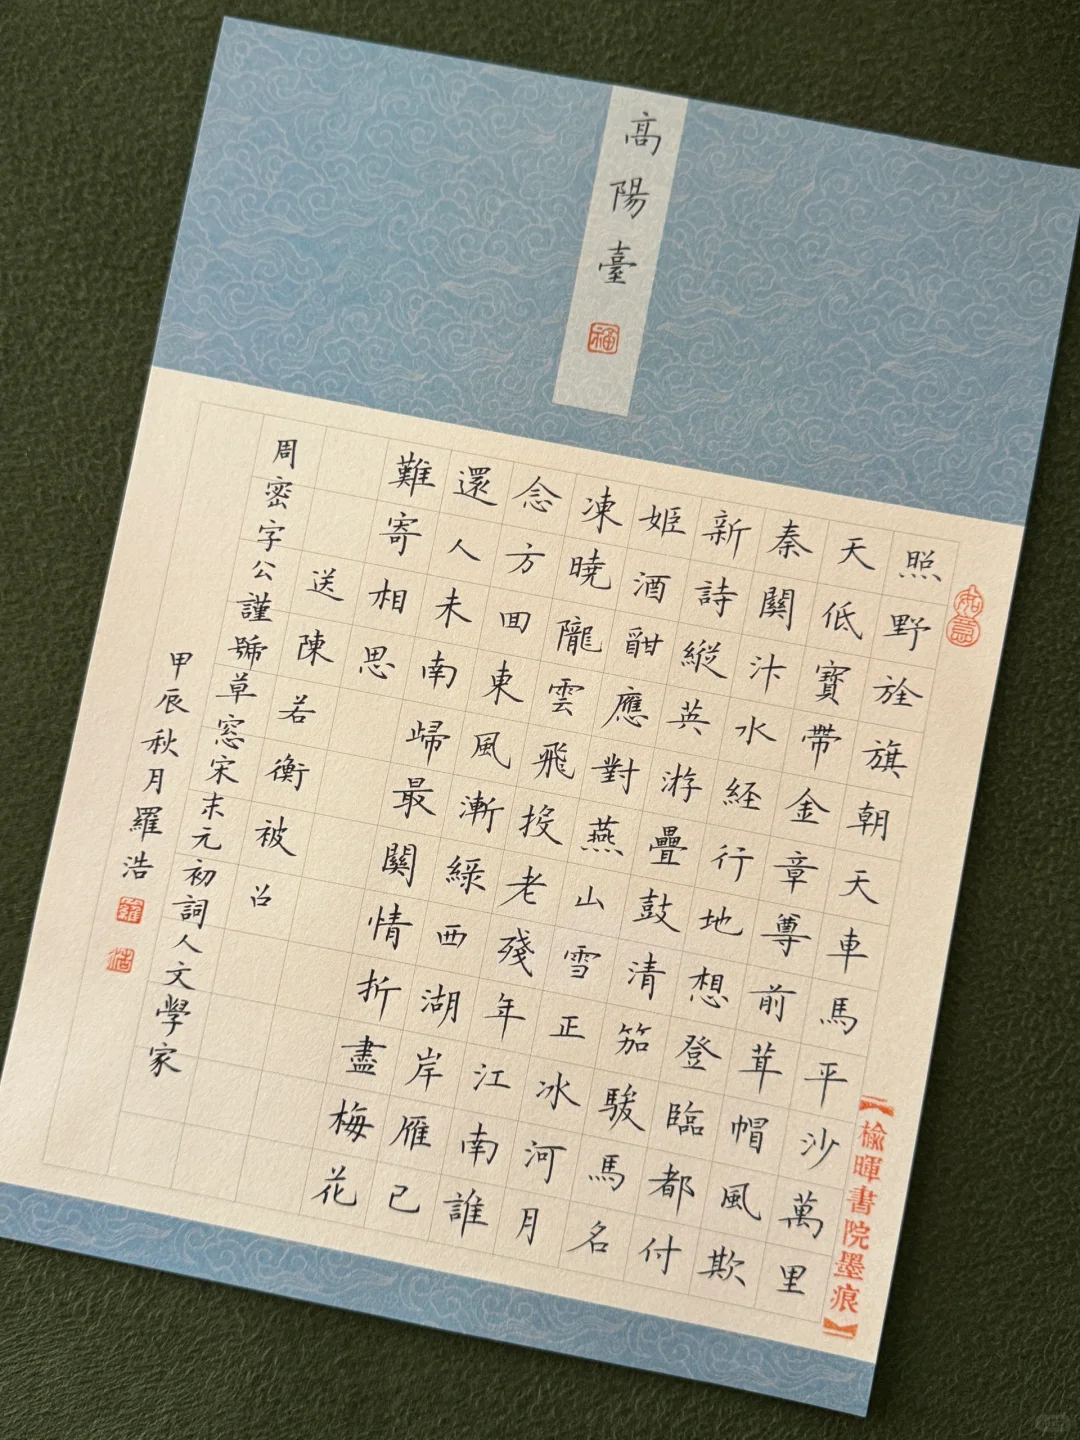 高陽臺
福
如意
照野旌旗朝天車馬平沙萬里
天低寶帶金章尊前茸帽風欺
秦關汴水経行地想登臨都付
新詩縱英游疊鼓清笳駿馬名
姬酒酣應對燕山雪正冰河月
凍曉隴雲飛投老殘年江南誰
念方回東風漸綠西湖岸雁已
還人未南歸最關情折盡梅花
難寄相思
送陳若衡被召
周密字公謹號草窓宋末元初詞人文學家
甲辰秋月羅浩
羅
浩
【榆暉書院墨痕】